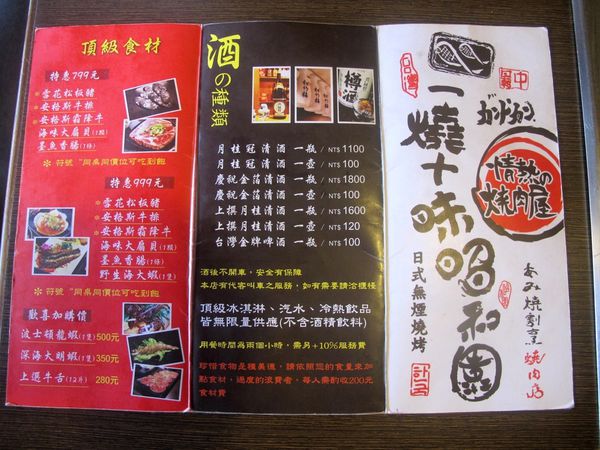 頂級食材
特惠799元
※雪花松板豬
※安格斯牛排
※安格斯霜降牛
海味大扇貝(1顆)
墨魚香腸(1條)
※ 符號"同桌同價位可吃到飽
特惠999元
※雪花松板豬
※安格斯牛排
※安格斯霜降牛
海味大扇貝(1顆)
墨魚香腸(1條)
野生海大蝦(1隻)
※ 符號"同桌同價位可吃到飽
歡喜加購價
波士頓龍蝦(1隻)500元
深海大明蝦(1隻)350元
上選牛舌(12片) 280元
酒の種類
樽酒
月桂冠清酒 一瓶/NT$1100
月桂冠清酒 一壺/NT$100
慶祝金箔清酒 一瓶/NT$1800
慶祝金箔清酒 一壺/NT$100
上撰月桂清酒 一瓶/NT$1600
上撰月桂清酒 一壺/NT$120
台灣金牌啤酒 一瓶/NT$100
酒後不開車,安全有保障
本店有代客叫車之服務,如有需要請洽櫃檯
頂級冰淇淋、汽水、冷熱飲品
皆無限量供應(不含酒精飲料)
用餐時間為兩個小時,需另+10%服務費
珍惜食物是種美德,請依照您的食量來加
點食材,過度的浪費者,每人需酌收200元
食材費
台灣
一燒十味昭和園
日式無煙燒烤
情熱の
燒肉屋
あみ燒割烹
燒肉店